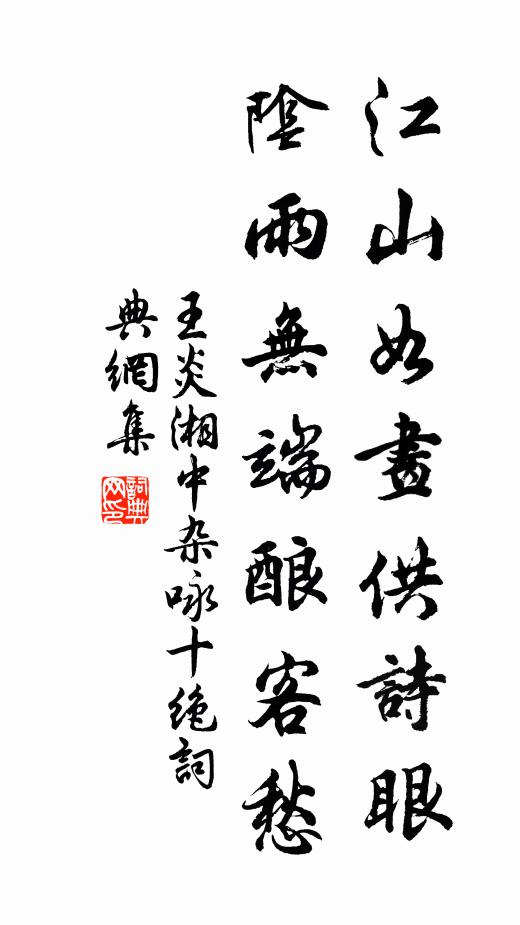 江山如畫供詩眼
陰雨無端酿客愁
王炎湘中杂咏十绝詞
典網集
詞典
网印